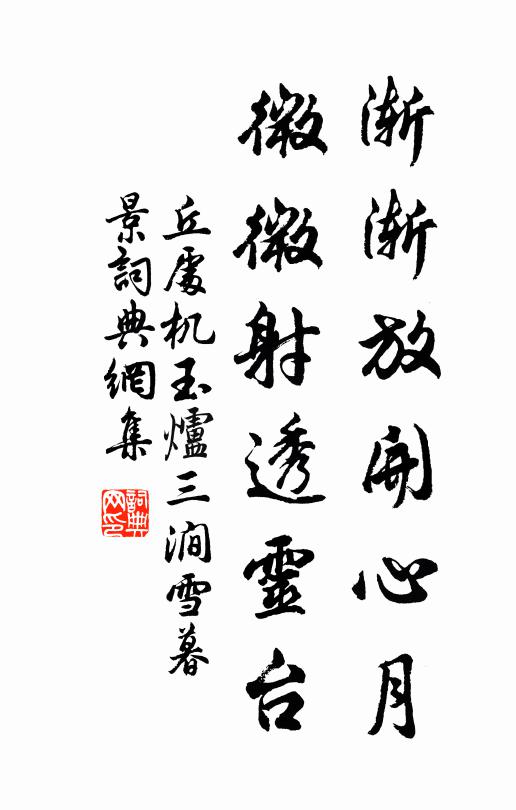 漸漸放開心月
微微射透靈台
丘處机玉爐三澗雪暮
景詞典網集
詞典网印